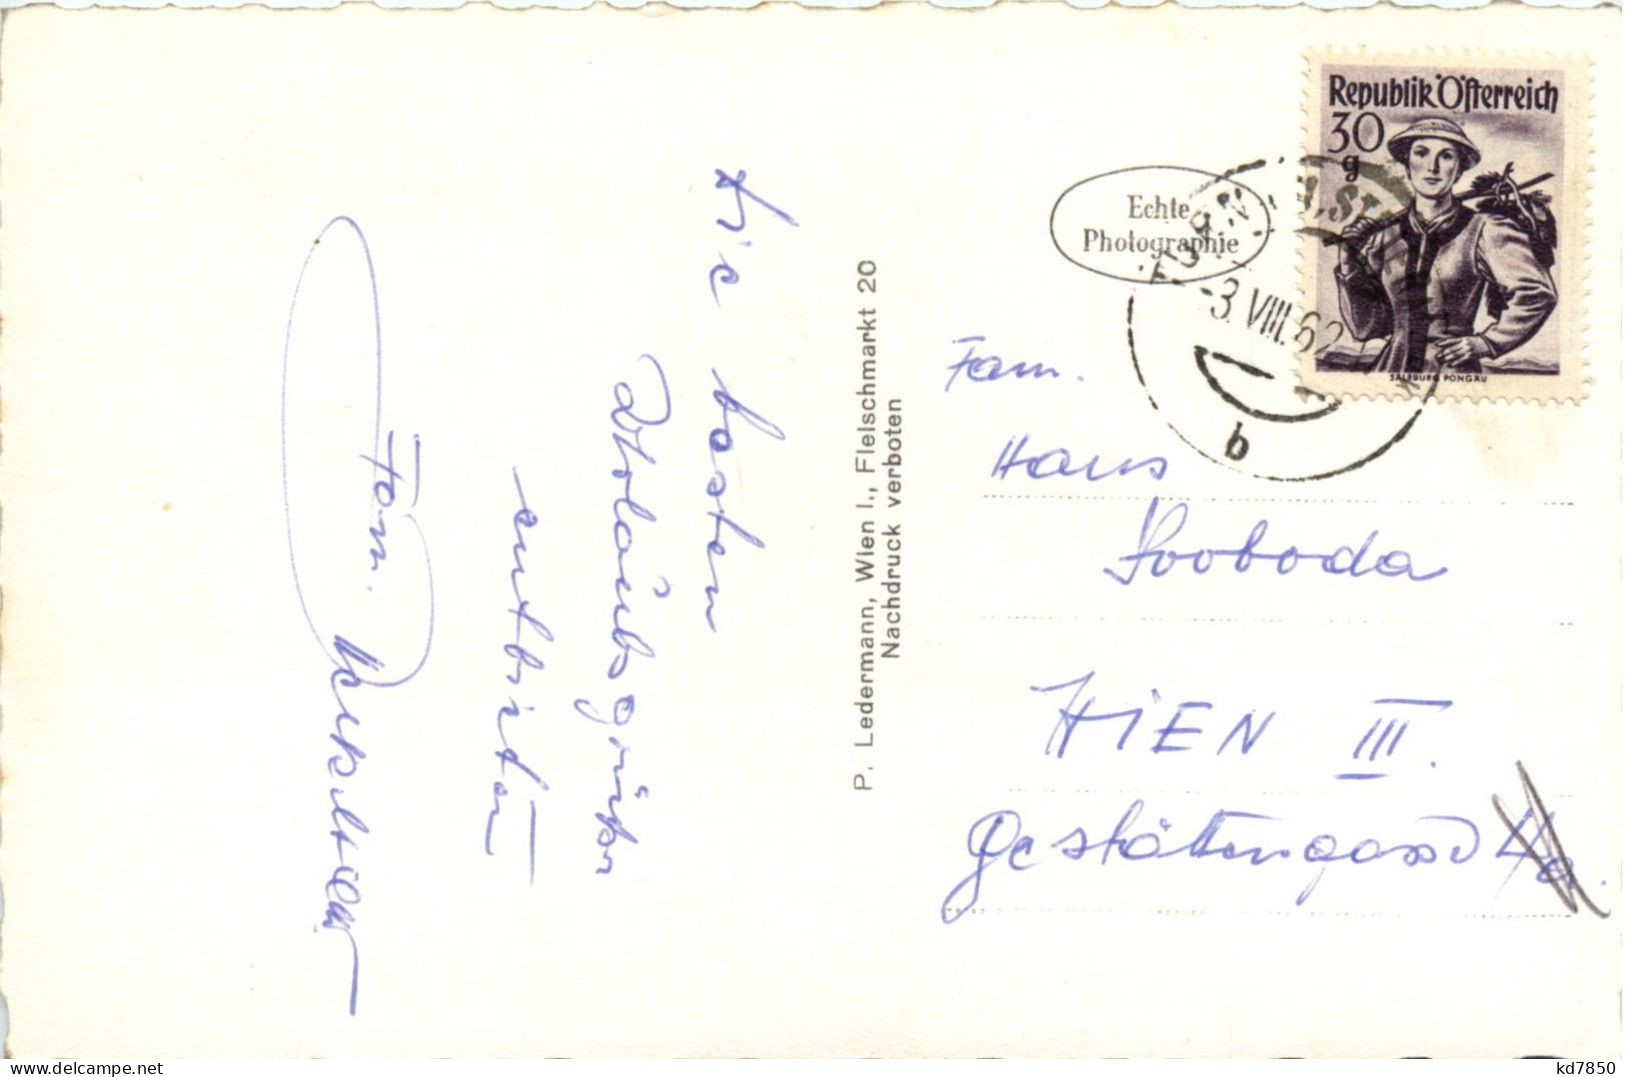 Die besten
Urlaubsgrüße
entbieten
Fam.
P. Ledermann, Wien I., Fleischmarkt 20
Nachdruck verboten
Echte
Photographie
Republik Österreich
30
g
SALZBURG, PONGAU
-3. VIII. 62
b
Fam.
Hans
Svoboda
WIEN III.
Gestättengasse
kd7850